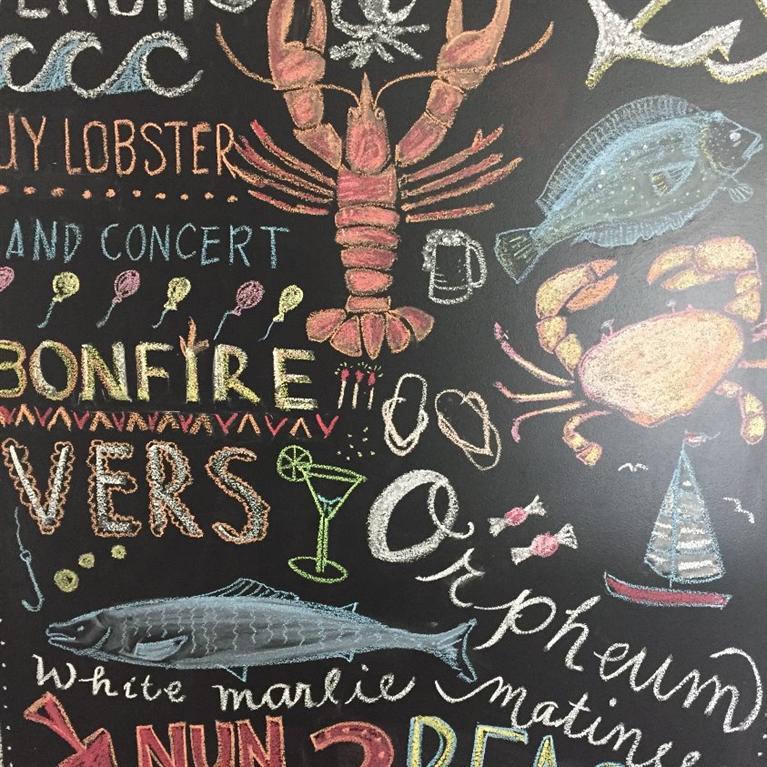 UY LOBSTER
AND CONCERT
BONFIRE
VERS
Orpheum
White marlie matinse
NUN 2 BEA